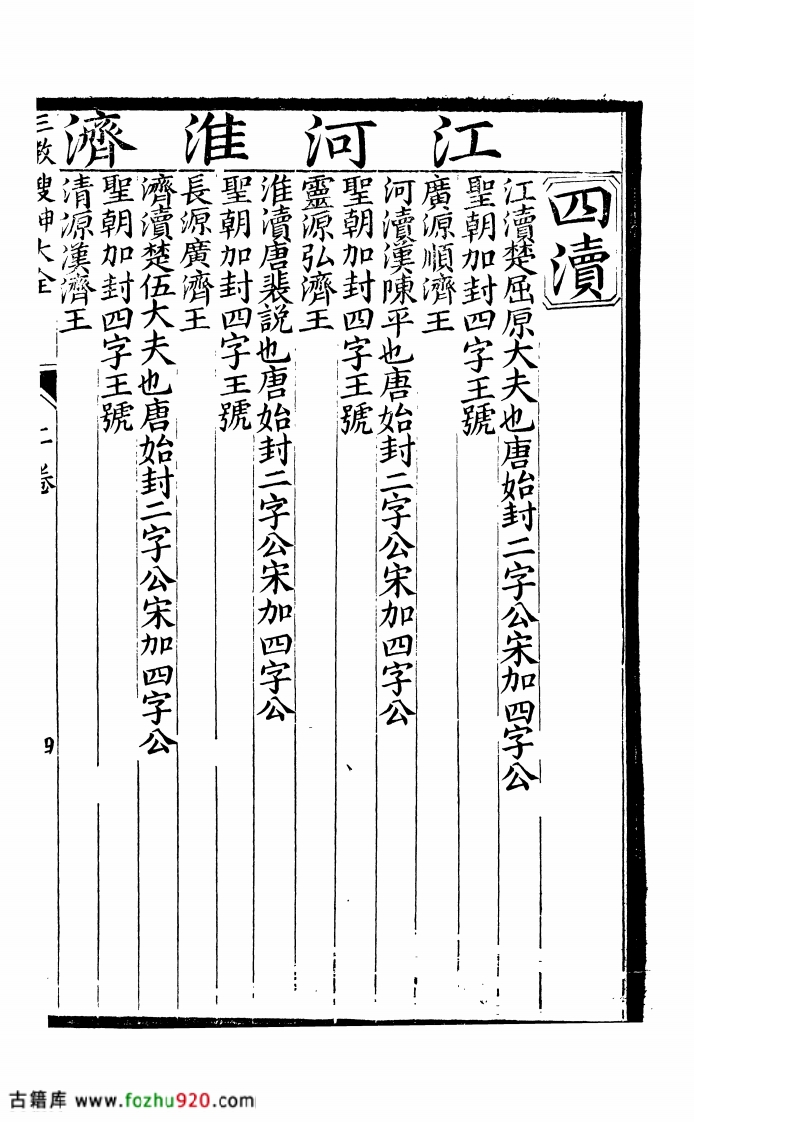 四瀆
江河淮濟
江瀆楚屈原大夫也唐始封二字公宋加四字公
聖朝加封四字王號
廣源順濟王
河瀆漢陳平也唐始封二字公宋加四字公
聖朝加封四字王號
靈源弘濟王
淮瀆唐裴說也唐始封二字公宋加四字公
聖朝加封四字王號
長源廣濟王
濟瀆楚伍大夫也唐始封二字公宋加四字公
聖朝加封四字王號
清源漢濟王
三教搜神大全
二卷
9
古籍库 www.fozhu920.com